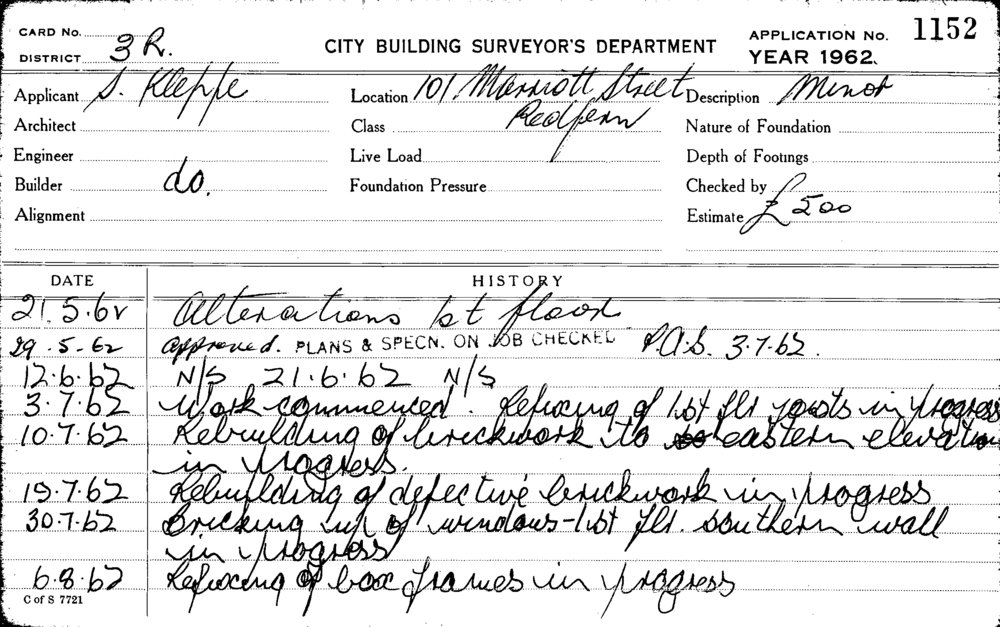 CARD No.
DISTRICT 3 R.
CITY BUILDING SURVEYOR'S DEPARTMENT
APPLICATION No. 1152
YEAR 1962.
Applicant S. Kleppe
Location 101 Marriott Street
Redfern
Description Minor
Architect
Class
Nature of Foundation
Engineer
Live Load
Depth of Footings
Builder do.
Foundation Pressure
Checked by
Alignment
Estimate £ 500
DATE HISTORY
21.5.62 Alterations 1st floor
29.5.62 approved. PLANS & SPECN. ON JOB CHECKED P.A.S. 3.7.62.
12.6.62 N/S 21.6.62 N/S
3.7.62 Work commenced. Refixing of 1st flr joists in progress
10.7.62 Rebuilding of brickwork to eastern elevation
in progress.
19.7.62 Rebuilding of defective brickwork in progress
30.7.62 Bricking up of windows-1st flr. southern wall
in progress
6.8.62 Refixing of box frames in progress
C of S 7721